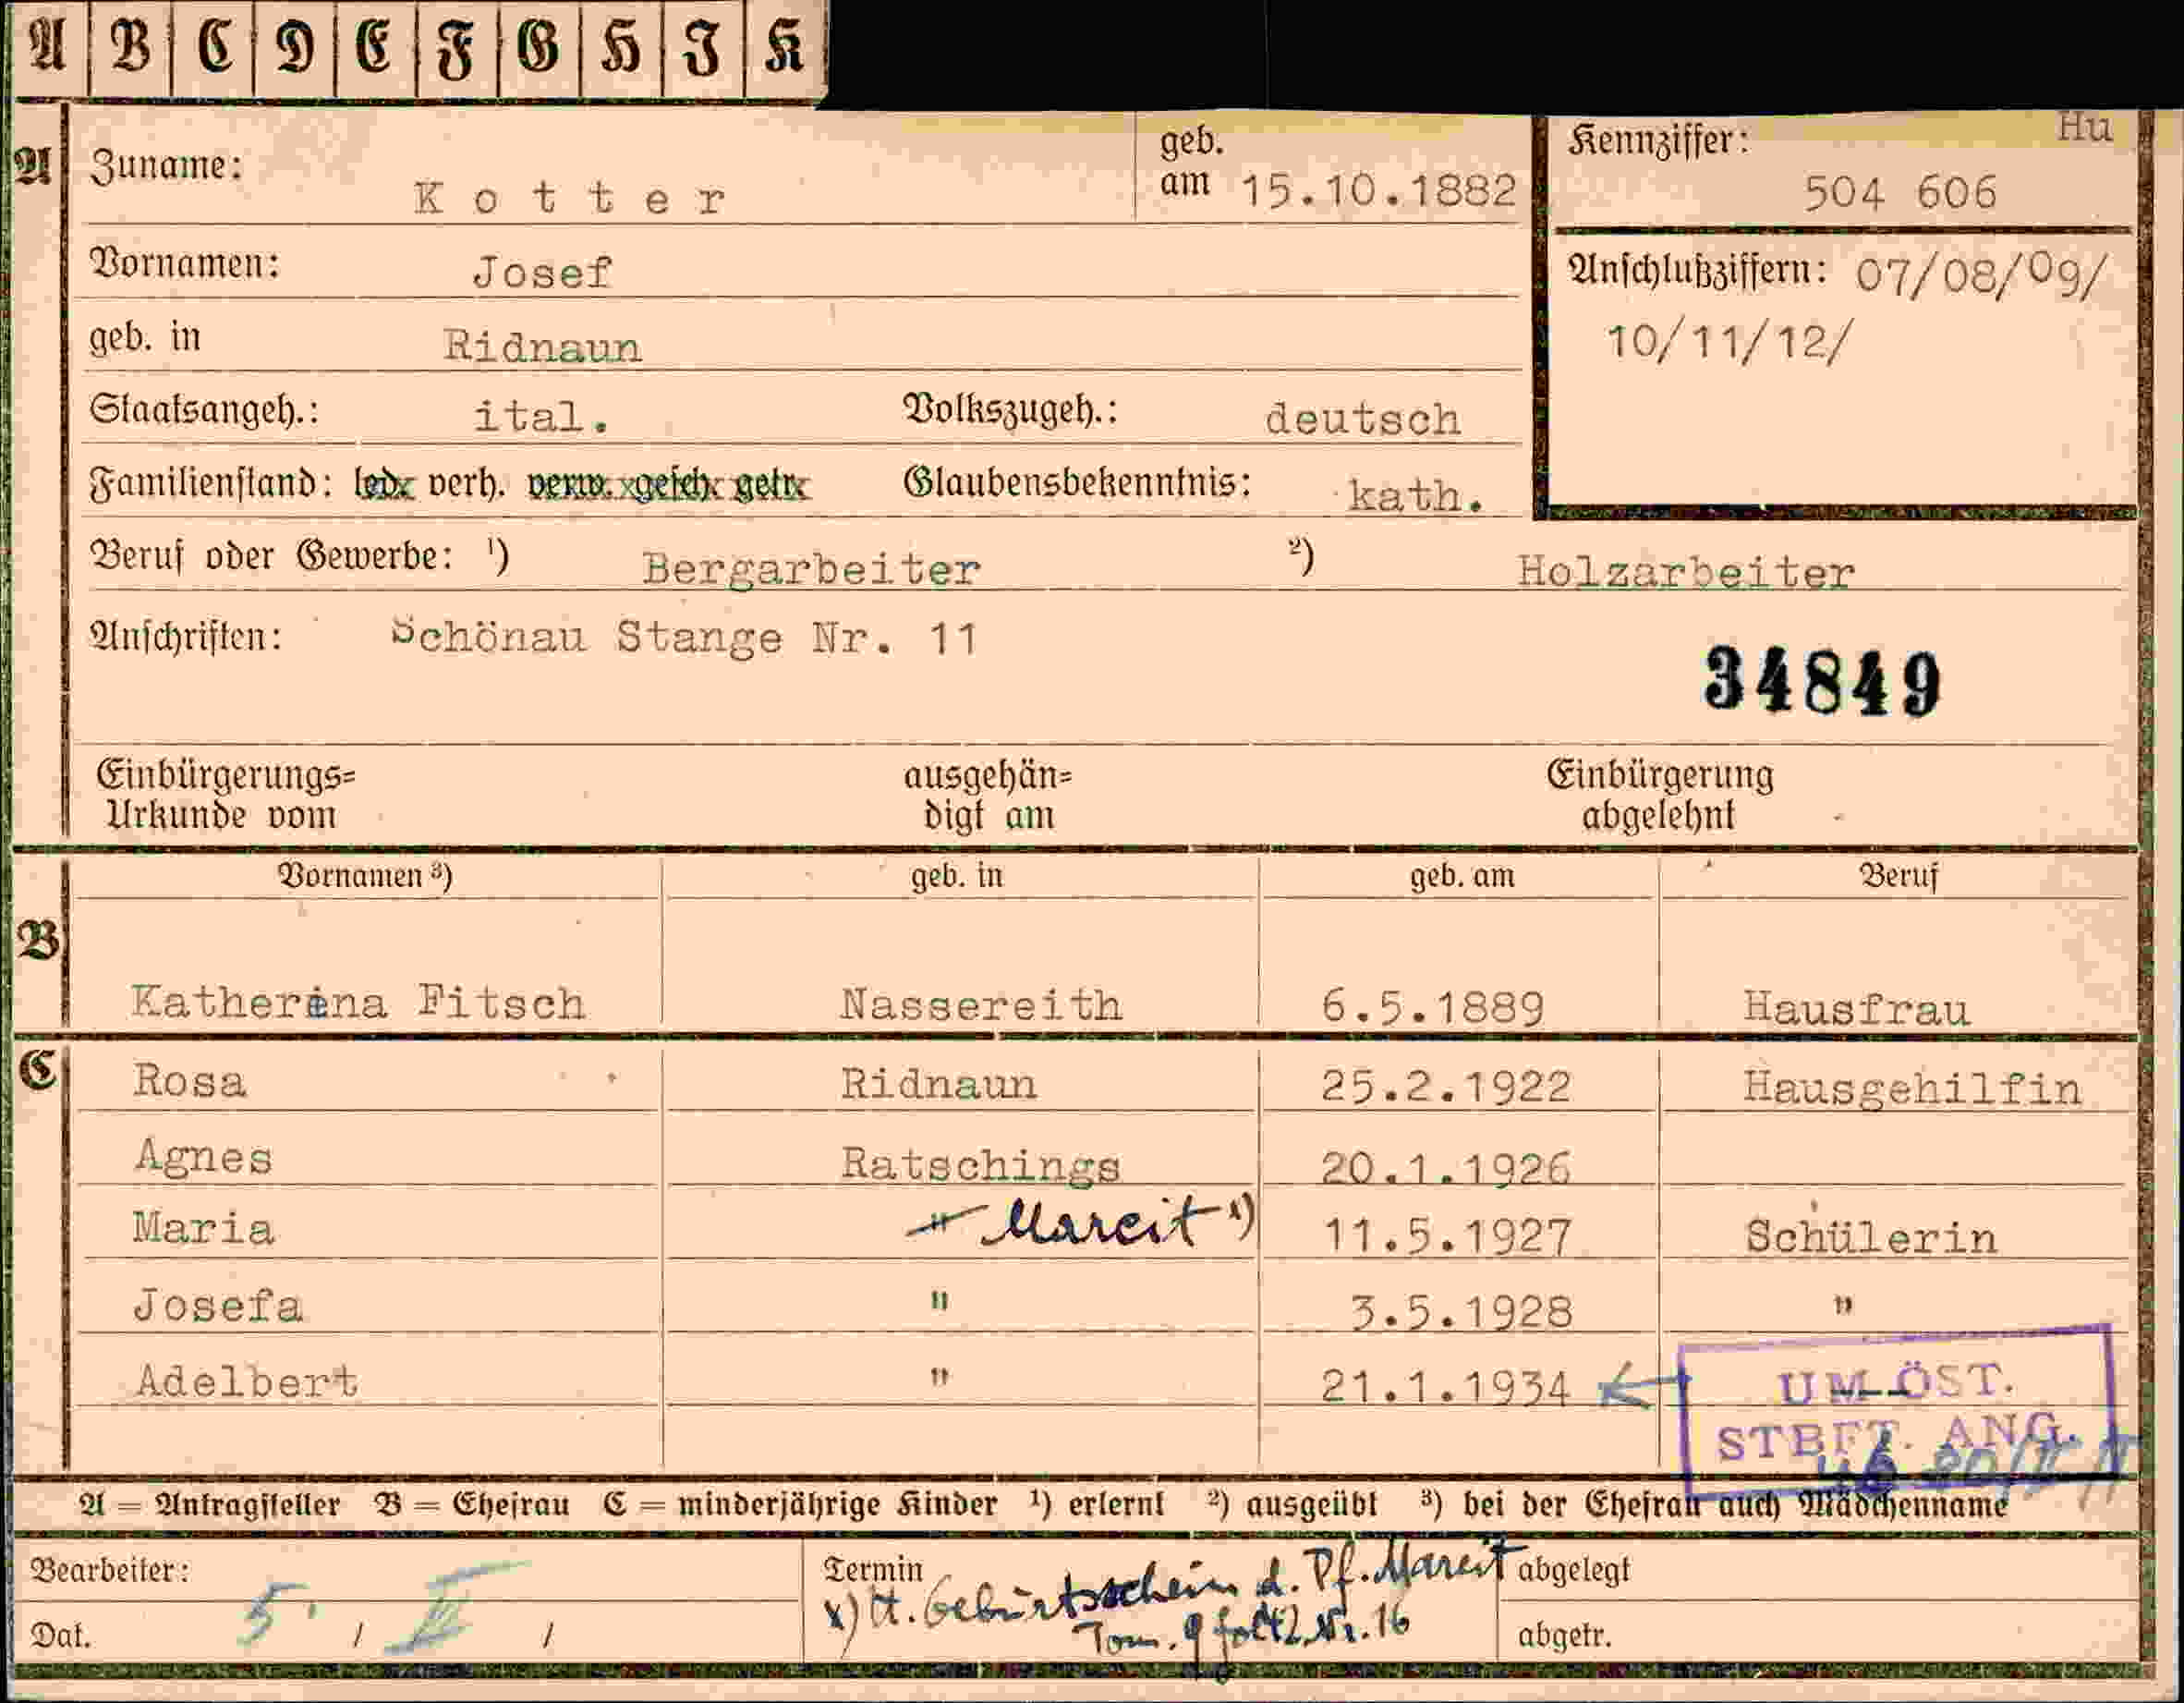 A B C D E F G H I K
A
Zuname: Kotter
geb. am 15.10.1882
Kennziffer: Hu
504 606
Vornamen: Josef
Anschlußziffern: 07/08/09/
10/11/12/
geb. in Ridnaun
Staatsangeh.: ital. Volkszugeh.: deutsch
Familienstand: led. verh. verw. gesch. getr. Glaubensbekenntnis: kath.
Beruf oder Gewerbe: ¹) Bergarbeiter ²) Holzarbeiter
Anschriften: Schönau Stange Nr. 11
34849
Einbürgerungs= ausgehän= Einbürgerung
Urkunde vom digt am abgelehnt
Vornamen ³) geb. in geb. am Beruf
B
Katherina Fitsch Nassereith 6.5.1889 Hausfrau
C
Rosa Ridnaun 25.2.1922 Hausgehilfin
Agnes Ratschings 20.1.1926
Maria " Mareit x) 11.5.1927 Schülerin
Josefa " 3.5.1928 "
Adelbert " 21.1.1934
UM ÖST.
STBFT. ANG.
A = Antragsteller B = Ehefrau C = minderjährige Kinder ¹) erlernt ²) ausgeübt ³) bei der Ehefrau auch Mädchenname
Bearbeiter: Termin abgelegt
x) lt. Geburtsschein d. Pf. Mareit
Tom. 9 fol 42 Nr. 16
Dat. 5. / / abgetr.